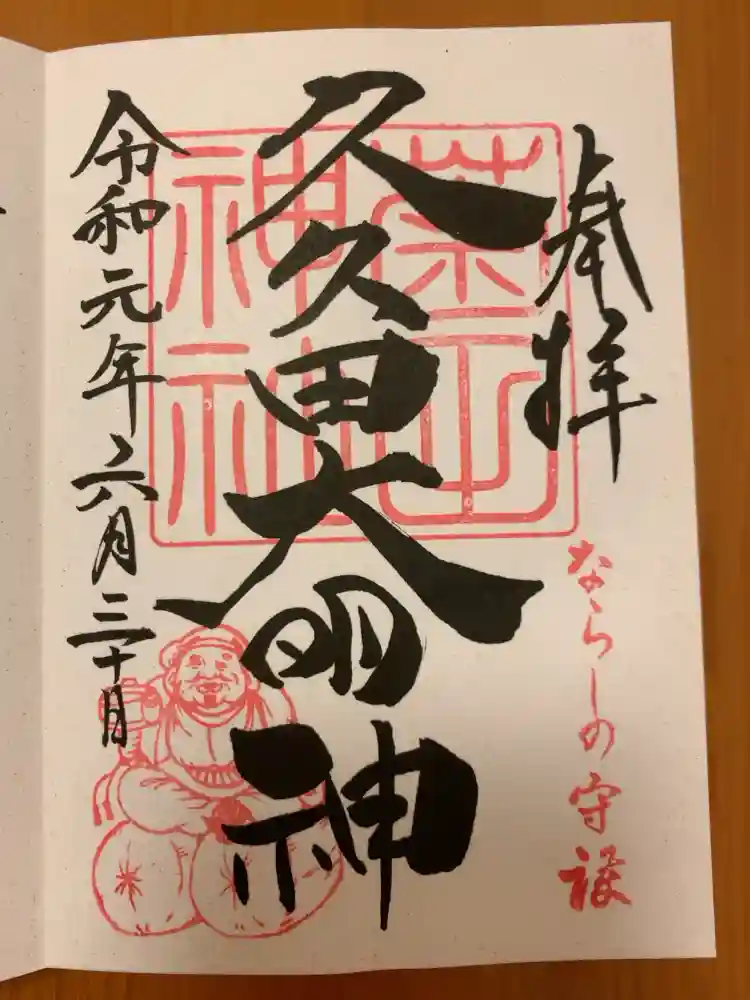 奉拝
ならしの守護
久久田大明神
神社
令和元年六月三十日